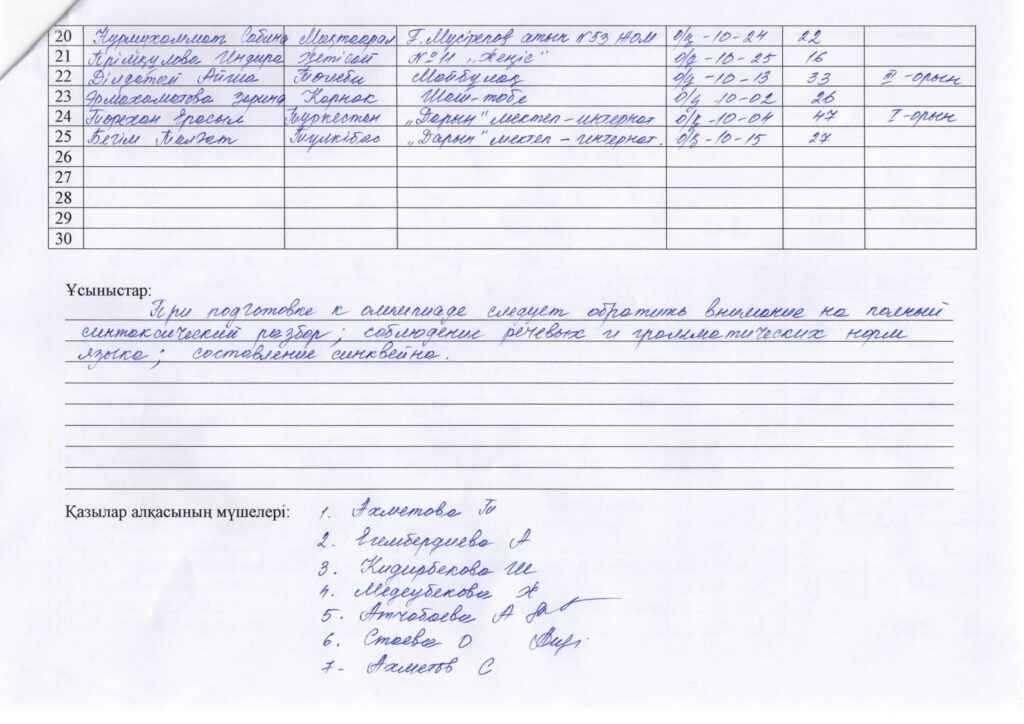 20 Нурмухаммат Сабина Мақтаарал Ғ.Мүсірепов атын №53 ЖОМ о/д-10-24 22
21 Прімқулова Индира Жетісай №11 „Жеңіс" о/д-10-25 16
22 Әділбай Айгиа Төлеби Майбулақ о/д-10-13 33 III-орын
23 Ермахаматова Зарина Қарнақ Шаш-төбе о/д-10-02 26
24 Төрехан Ерасыл Түркестан „Дарын" мектеп-интернат о/д-10-04 47 I-орын
25 Бегім Талғат Түлкібас „Дарын" мектеп-интернат. о/д-10-15 27
26
27
28
29
30
Ұсыныстар:
При подготовке к олимпиаде следует обратить внимание на полный
синтаксический разбор; соблюдение речевых и грамматических норм
языка; составление синквейна.
Қазылар алқасының мүшелері:
1. Ахметова Т
2. Егембердиева А
3. Кидирбекова Ш
4. Медеубекова Ж
5. Атчабаева А
6. Стаева О
7- Ахметов С